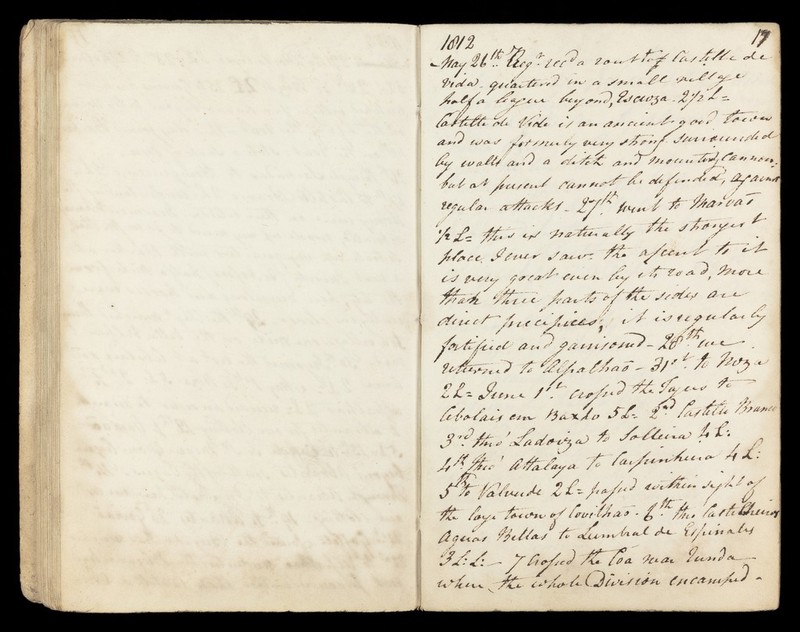 1812 17
May 26th. Regt. rec'd a rout to Castello de
Vida. quartered in a small village
half a league beyond, Escusa. 2 1/2 L=
Castello de Vide is an ancient good town
and was formerly very strong surrounded
by walls and a ditch and mounted cannon:
but at present cannot be defended, against
regular attacks _ 27th. went to Marvaõ
1/2 L= this is naturally the strongest
place I ever saw. the ascent to it
is very great even by its road, more
than three parts of the sides are
direct precipices; it is regularly
fortified and garrisoned _ 28th. we
returned to Alpalhaõ _ 31st. to Niza
2 L= June 1st. crossed the Tagus to
Cebolais em Baxho 5 L= 2nd Castello Branco
3rd. thro' Ladoiza to Solleira 4 L:
4th thro' Attalaya to Carpinheira 4 L:
5th to Valverde 2 L= passed within sight of
the large town of Covilhaõ - 6th. thro
Aguas Bellas to Lumbral de Espinales
3 L: L: _ 7 Crossed the Coa near
where the whole Division encamped -